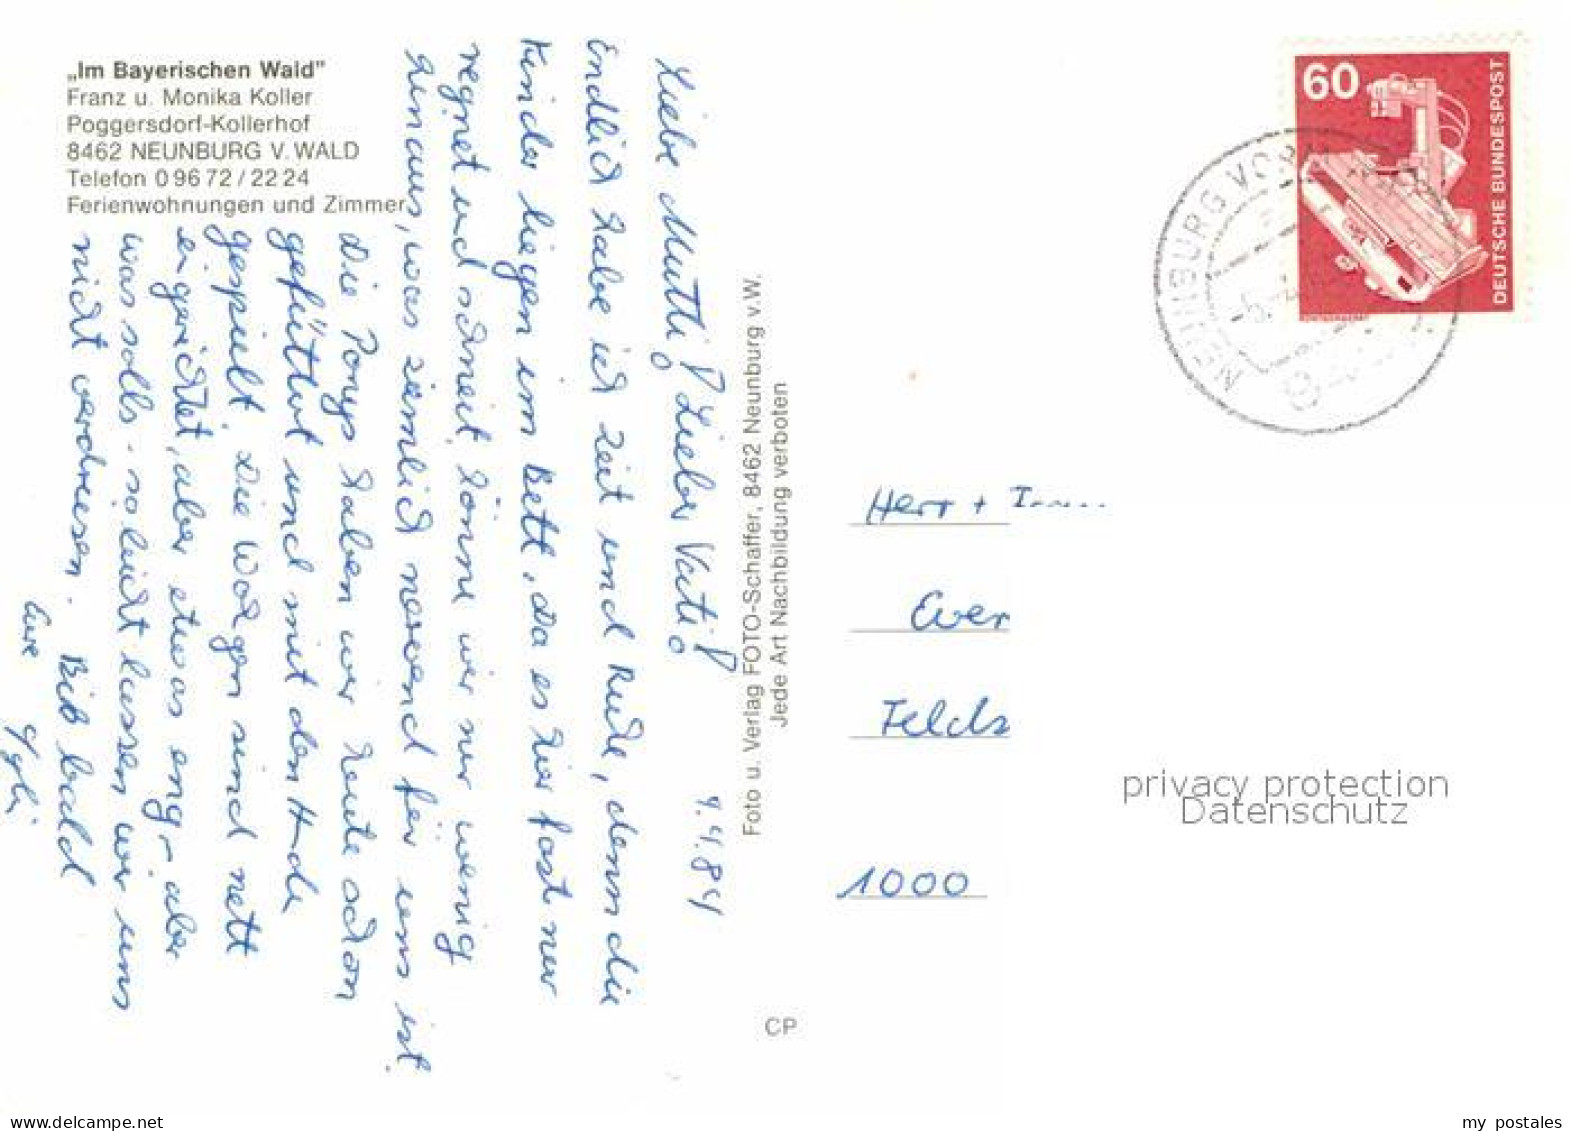 „Im Bayerischen Wald"
Franz u. Monika Koller
Poggersdorf-Kollerhof
8462 NEUNBURG V. WALD
Telefon 0 96 72 / 22 24
Ferienwohnungen und Zimmer
4.4.84
Liebe Mutti! Lieber Vati!
Endlich habe ich Zeit und Ruhe, denn die
Kinder liegen im Bett. Da es hier fast nur
regnet und schneit, könne wir nur wenig
hinaus, was ziemlich nervend für uns ist.
Die Ponys haben wir heute schon
gefüttert und mit den Hunde
gespielt. Die Wohngen sind nett
eingerichtet, aber etwas eng - aber
was solls - so leicht lassen wir uns
nicht verdriesen. Bis bald
Eure
Foto u. Verlag FOTO-Schaffer, 8462 Neunburg v.W.
Jede Art Nachbildung verboten
CP
60
DEUTSCHE BUNDESPOST
NEUNBURG VORM WALD
Herr +
Ever
Felds
1000
privacy protection
Datenschutz
my postales